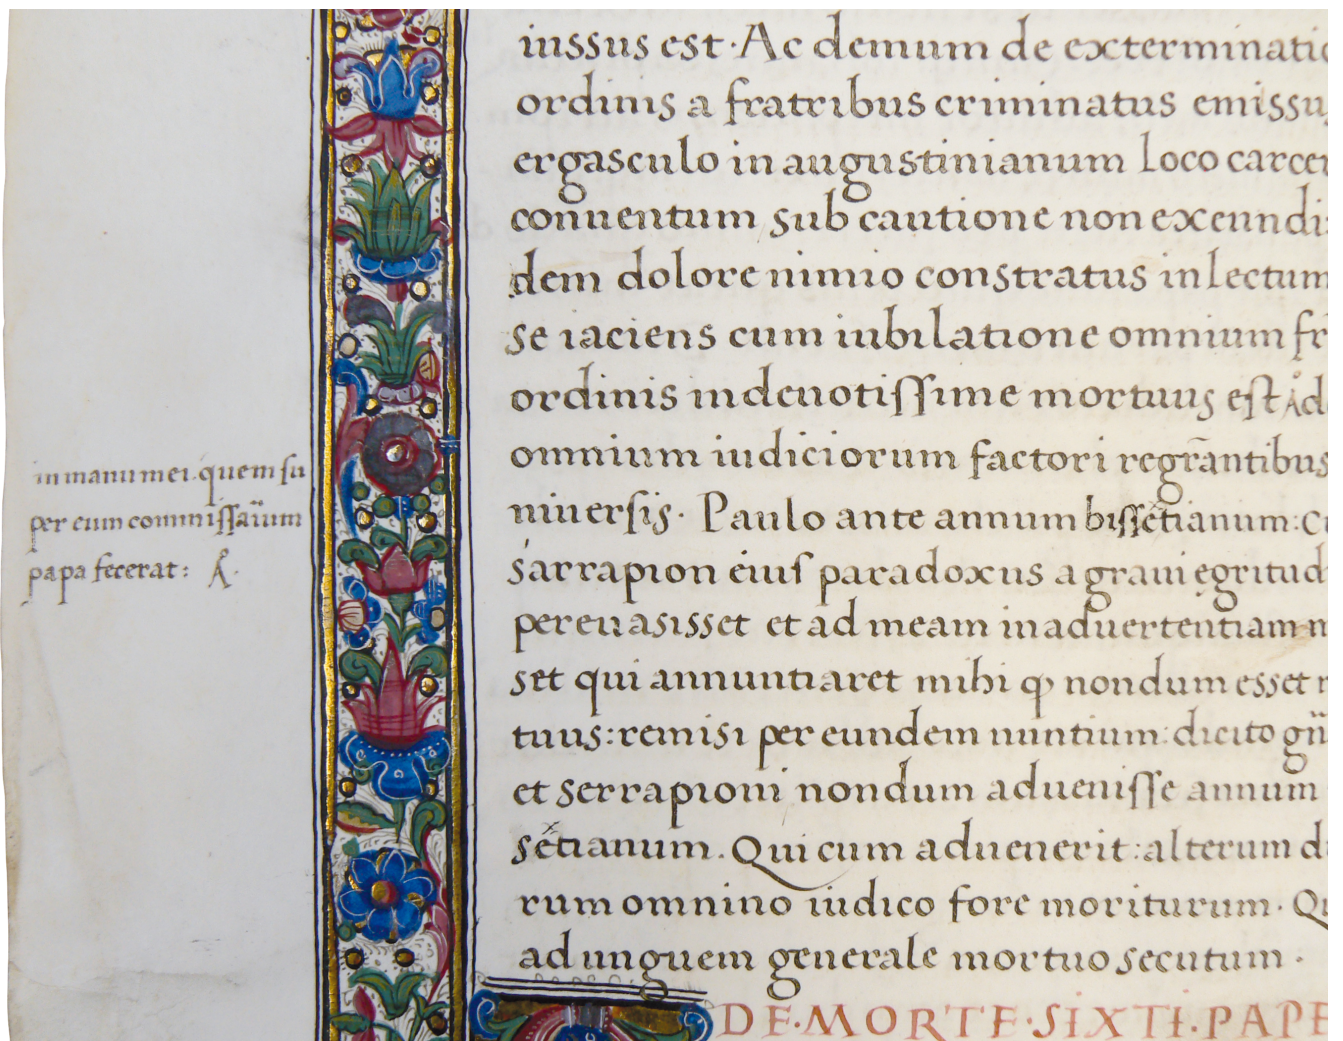 iussus est·Ac demum de exterminatio
ordinis a fratribus criminatus emissus
ergasculo in augustinianum Loco carcer
conuentum sub cautione non exeundi:
dem dolore nimio constratus in lectum
se iaciens cum iubilatione omnium fr
ordinis indeuotissime mortuus est Ad
omnium iudiciorum factori regr̃antibus
niuersis· Paulo ante annum bissẽtianum: C
sarrapion eius paradoxus a graui ęgritud
pereuasisset et ad meam inaduertentiam
set qui annuntiaret mihi ꝙ nondum esset
tuus:remisi per eundem nuntium:dicito
et serrapioni nondum aduenisse annum
sẽtianum. Qui cum aduenerit:alterum d
rum omnino iudico fore moriturum· Qu
ad unguem generale mortuo secutum·
DE·MORTE·SIXTI·PAPE
in manu mei.quem su
per eum commissarium
papa fecerat: A·